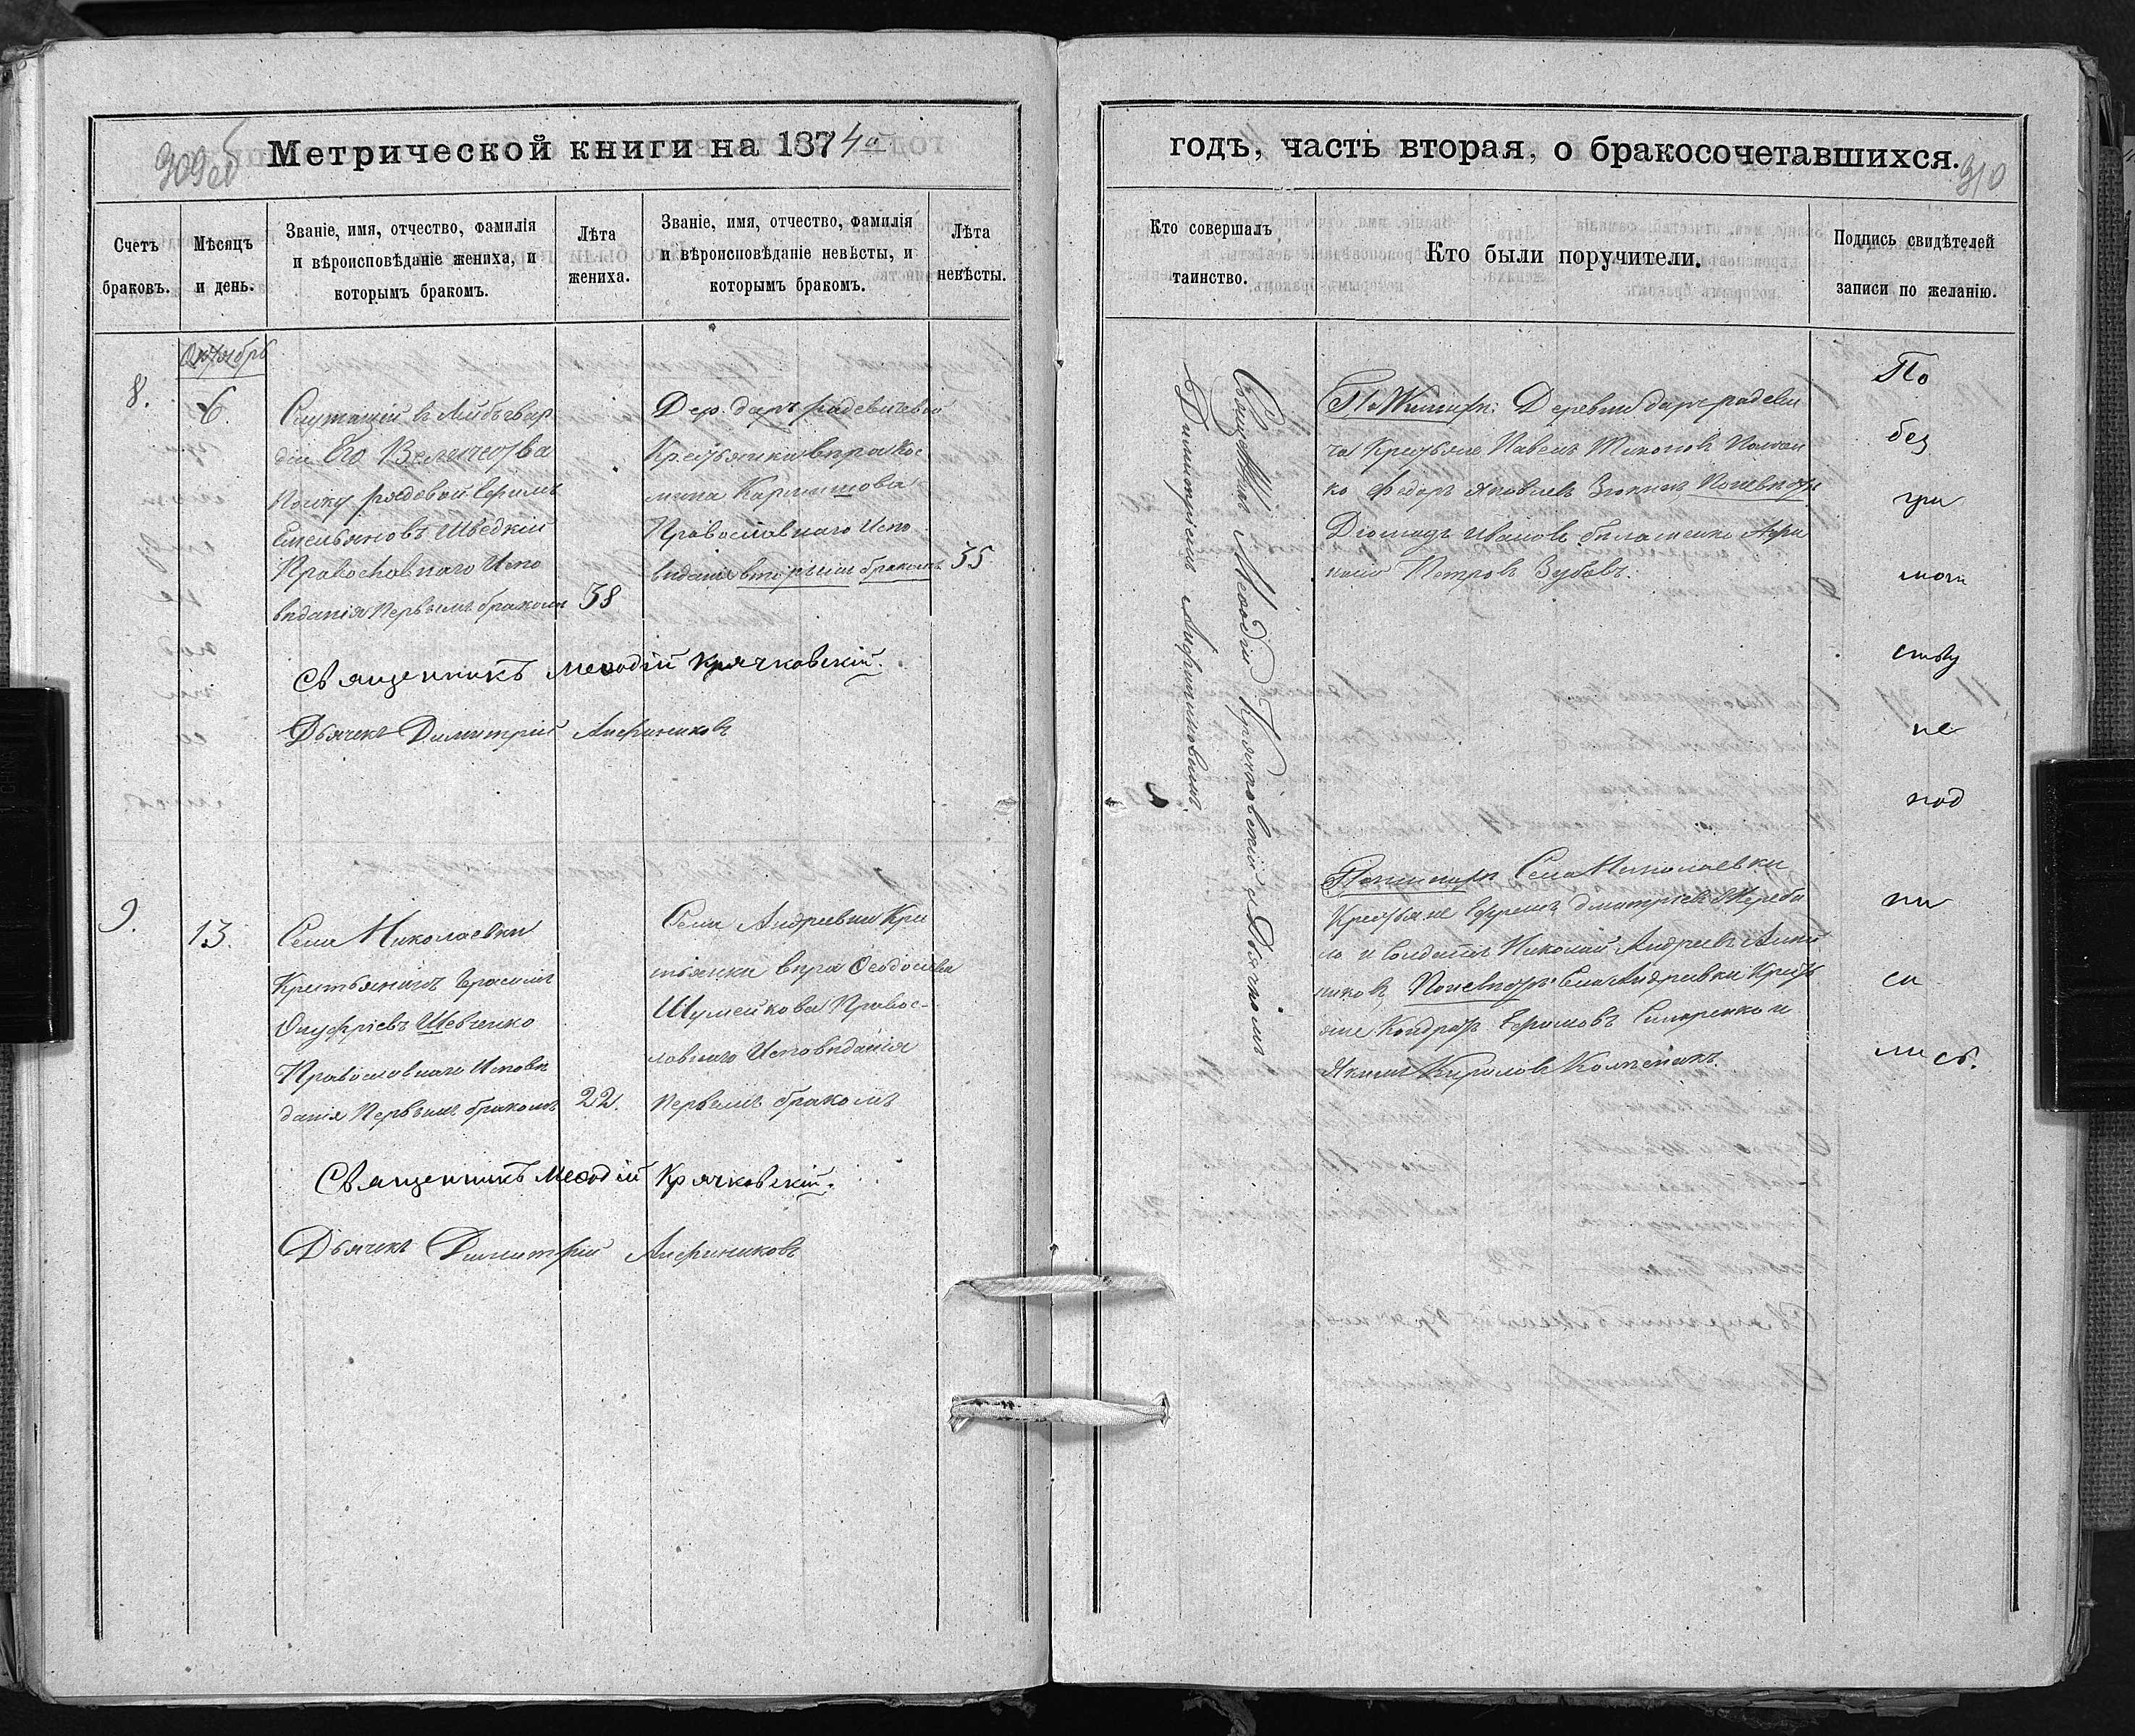 309об
Метрической книги на 1874й
Счетъ браковъ.
Мѣсяцъ и день.
Званіе, имя, отчество, фамилія
и вѣроисповѣданіе жениха, и
которымъ бракомъ.
Лѣта
жениха.
Званіе, имя, отчество, фамилія
и вѣроисповѣданіе невѣсты, и
которымъ бракомъ.
Лѣта
невѣсты.
Октябрь
8.
6.
Служащій в Лейбъгвар
діи Его Величества
Полку рядовой Ефимъ
Емельяновъ Шведкій
Православнаго Испо
вѣданія Первымъ бракомъ
38
Дер.
Крестьянка вдова
Православнаго Испо
вѣданія вторымъ бракомъ
35
Священникъ Меѳодій Крячковскій.
Дьячекъ Димитрій
9.
13.
Села Николаевки
Крестьянинъ Герасимъ
Онуфріевъ Шевченко
Православнаго Исповѣ
данія Первымъ бракомъ
22.
Села Андреевки Кре
стьянка Ѳеодосіева
Шумейкова Правос-
лавнаго Исповѣданія
Первымъ бракомъ
Священникъ Меѳодій Крячковскій.
Дьячекъ Димитрій
годъ, часть вторая, о бракосочетавшихся.
310
Кто совершалъ
таинство.
Кто были поручители.
Подпись свидѣтелей
записи по желанію.
Священникъ Меѳодій Крячковскій съ Дьячкомъ
Димитріемъ
По Жениху: Деревни
Крестьяне Павелъ Тихоновъ
Федоръ Яковлевъ По невѣсты
Діомидъ Ивановъ
Петровъ Зубовъ.
По жениху Села Николаевки
Крестьяне Ефремъ Дмитріевъ Жереби
ло и Солдатъ Николай Андреевъ
По невѣсты Села Андреевки Кресть
яне Кондратъ Ефимовъ
Якимъ Кириловъ
По
без
гра
мот
ству
не
под
пи
са
лись.